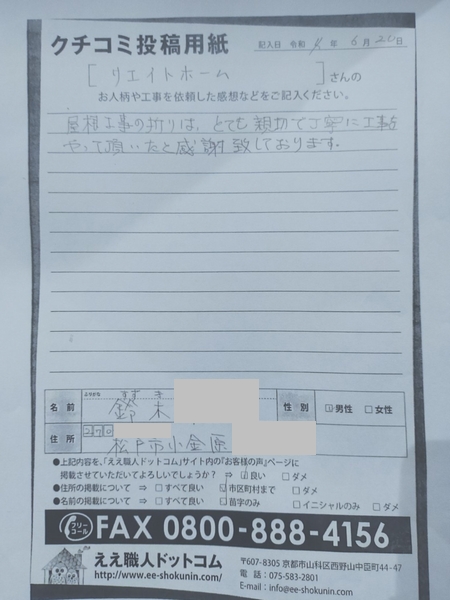 クチコミ投稿用紙
記入日 令和 年 6月20日
[リエイトホーム]さんの
お人柄や工事を依頼した感想などをご記入ください。
屋根工事の折りは、とても親切で丁寧に工事を
やって頂いたと感謝致しております。
ふりがな すずき
名前 鈴木 性別 ☑男性 □女性
住所 松戸市小金原
●上記内容を、「ええ職人ドットコム」サイト内の「お客様の声」ページに
掲載させていただいてよろしいでしょうか? ⇒ ☑良い □ダメ
●住所の掲載について ⇒ □すべて良い ☑市区町村まで □ダメ
●名前の掲載について ⇒ □すべて良い ☑苗字のみ □イニシャルのみ □ダメ
フリーコール FAX 0800-888-4156
ええ職人ドットコム
http://www.ee-shokunin.com/
〒607-8305 京都市山科区西野山中臣町44-47
電話:075-583-2801
E-mail:info@ee-shokunin.com